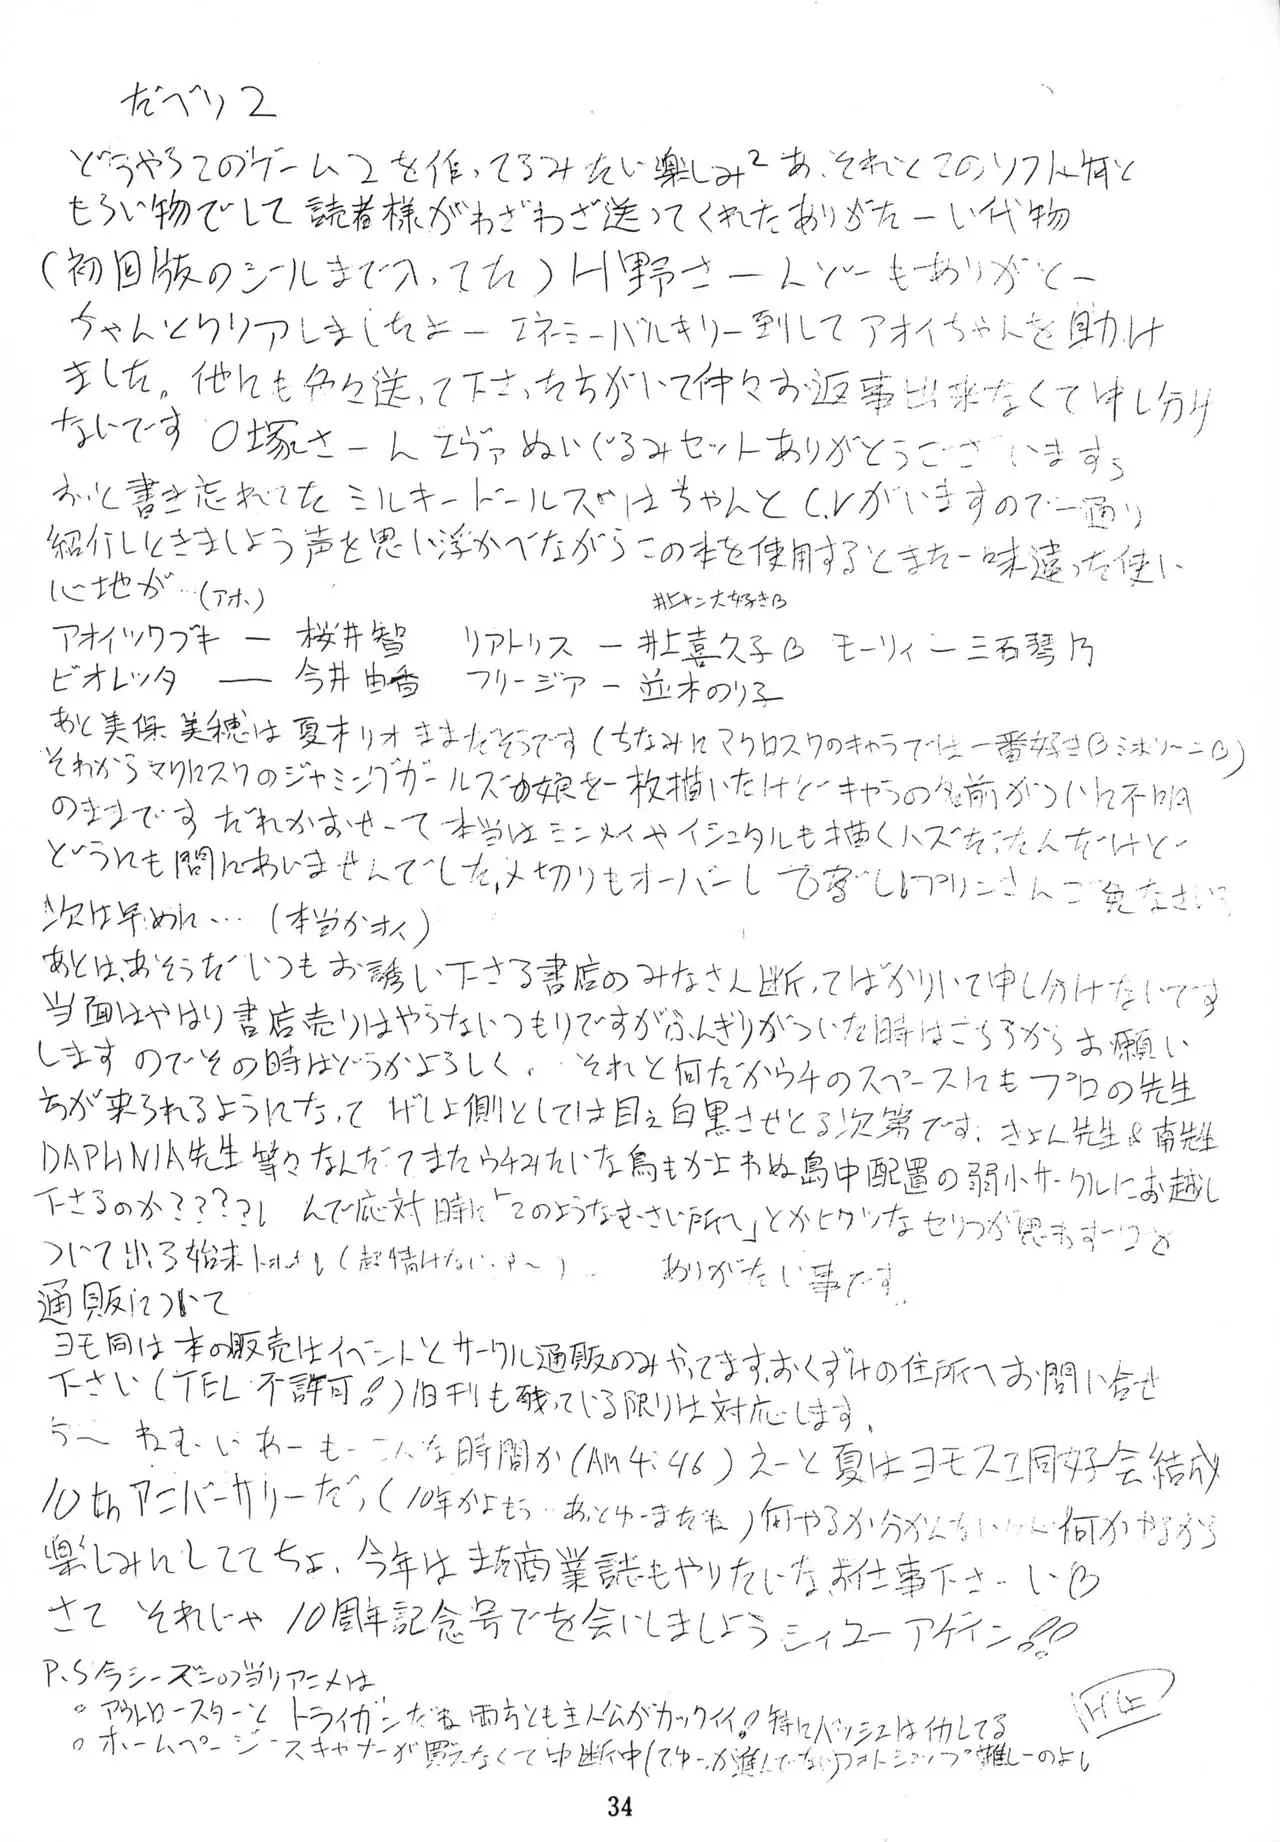 だべり2
どうやらこのゲーム2を作ってるみたい楽しみ² あ、それとこのソフト何と
もらい物でして読者様がわざわざ送ってくれたありがたーい代物
(初回版のシールまで入ってた) H野さーんどーもありがとー
ちゃんとクリアしましたよー エネミーバルキリー倒してアオイちゃんを助け
ました。他にも色々送って下さった方がいて中々お返事出来なくて申し分け
ないです O塚さーん エヴァぬいぐるみセットありがとうございます
おっと書き忘れてた ミルキードールズはちゃんとC.Vがいますので一通り
紹介しときましょう声を思い浮かべながらこの本を使用するとまた一味違った使い
心地が…(アホ)
井上サン大好きβ
アオイツワブキ ー 桜井智 リアトリス ー 井上喜久子β モーリィー 三石琴乃
ビオレッタ ー 今井由香 フリージア ー 並木のり子
あと美保美穂は夏木リオままだそうです(ちなみにマクロスクのキャラでは一番好きβミホリーニβ)
それからマクロスクのジャミングガールズの娘を一枚描いたけどキャラの名前がついに不明
のままです だれかおせーて 本当はミンメイやイシュタルも描くハズだったんだけど
どうにも間にあいませんでした、〆切りもオーバーし プリンさんご免なさい
次は早めに…(本当かオイ)
あとは、あそうだいつもお誘い下さる書店のみなさん断ってばかりいて申し分けないです
当面はやはり書店売りはやらないつもりですがふんぎりがついた時はこちらからお願い
しますのでその時はどうかよろしく、 それと何だかウチのスペースにもプロの先生
方が来られるようになって げしょ側としては目を白黒させとる次第です、きょん先生&南先生
DAPHNIA先生等々なんだってまたウチみたいな鳥もかよわぬ島中配置の弱小サークルにお越し
下さるのか????、 んで応対時に「このようなむさい所へ」とかヒクツなセリフが思わずーっと
ついて出る始末 (超情けない ) ありがたい事です、
通販について
ヨモ同は本の販売はイベントとサークル通販のみやってます。おくずけの住所へお問い合せ
下さい(TEL不許可!)旧刊も残っている限りは対応します、
うー ねむーいわーもーこんな時間か(Am4:46)えーと夏はヨモスエ同好会結成
10thアニバーサリーだっ(10年かよもう…あっとゆーまだね)何やるか分かんないけど何かやるから
楽しみにしててちょ、今年はまた商業誌もやりたいなお仕事下さーいβ
さて それじゃ10周年記念号でを会いしましょうシィユーアゲイン!!
P.S今シーズンの当りアニメは
○ アウトロースターとトライガンだね両方とも主人公がカックイイ!特にバッシュは仂してる
○ ホームページースキャナーが買えなくて中断中(てゆーか進んでない)フォトショップ難しーのよし
34